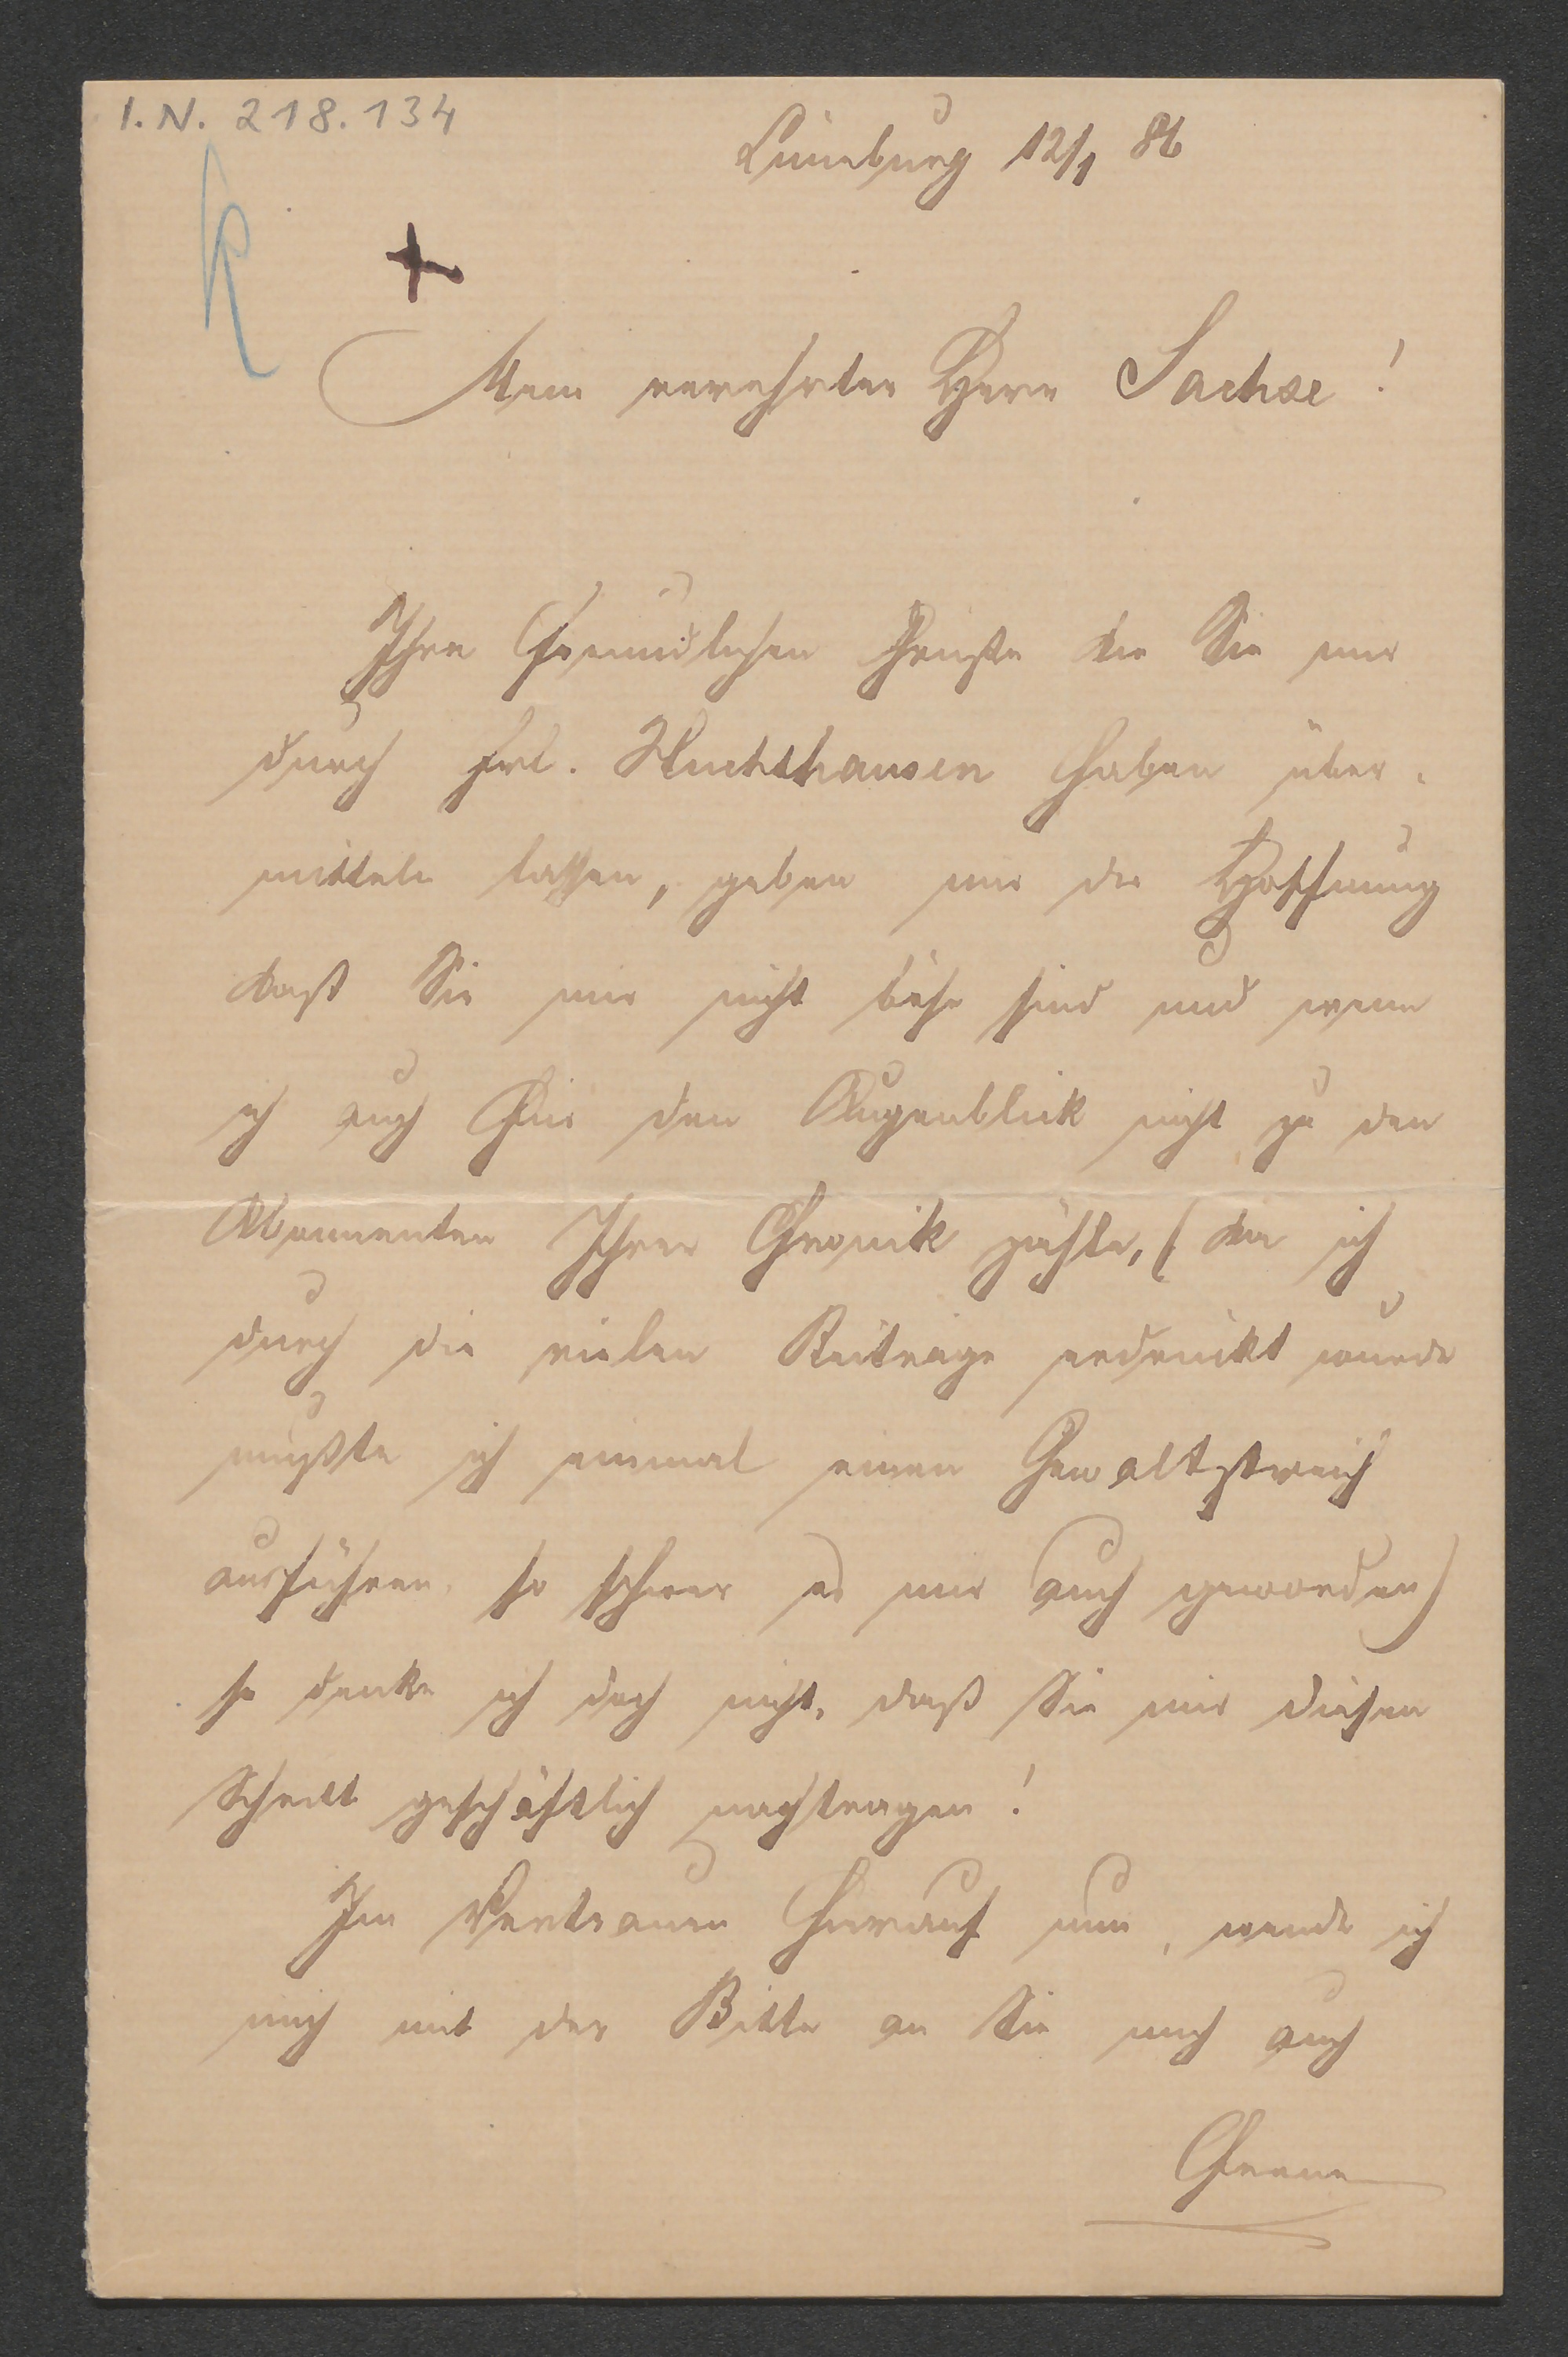 I.N. 218.134
Lüneburg 12/1 86
Mein verehrter Herr Sachse!
Ihre freundlichen Grüße die Sie mir
durch Frl. Huchthausen haben über-
mitteln lassen, geben mir die Hoffnung
daß Sie mir nicht böse sind und wenn
ich auch für den Augenblick nicht zu den
Abonnenten Ihrer Chronik zähle, (da ich
durch die vielen Beiträge erdrückt wurde
mußte ich einmal einen Gewaltstreich
ausführen, so schwer es mir auch geworden)
so denke ich doch nicht, daß Sie mir diesen
Schritt geschäftlich nachtragen!
Im Vertrauen hierauf nun, wende ich
mich mit der Bitte an Sie mich auch
ferner